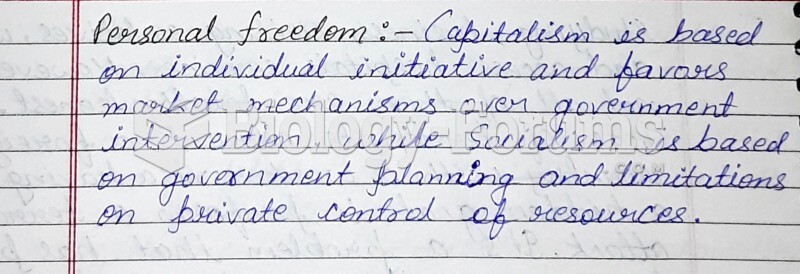 Personal freedom :- Capitalism is based
on individual initiative and favors
market mechanisms over government
intervention, while Socialism is based
on government planning and limitations
on private control of resources.
Biology-Forums